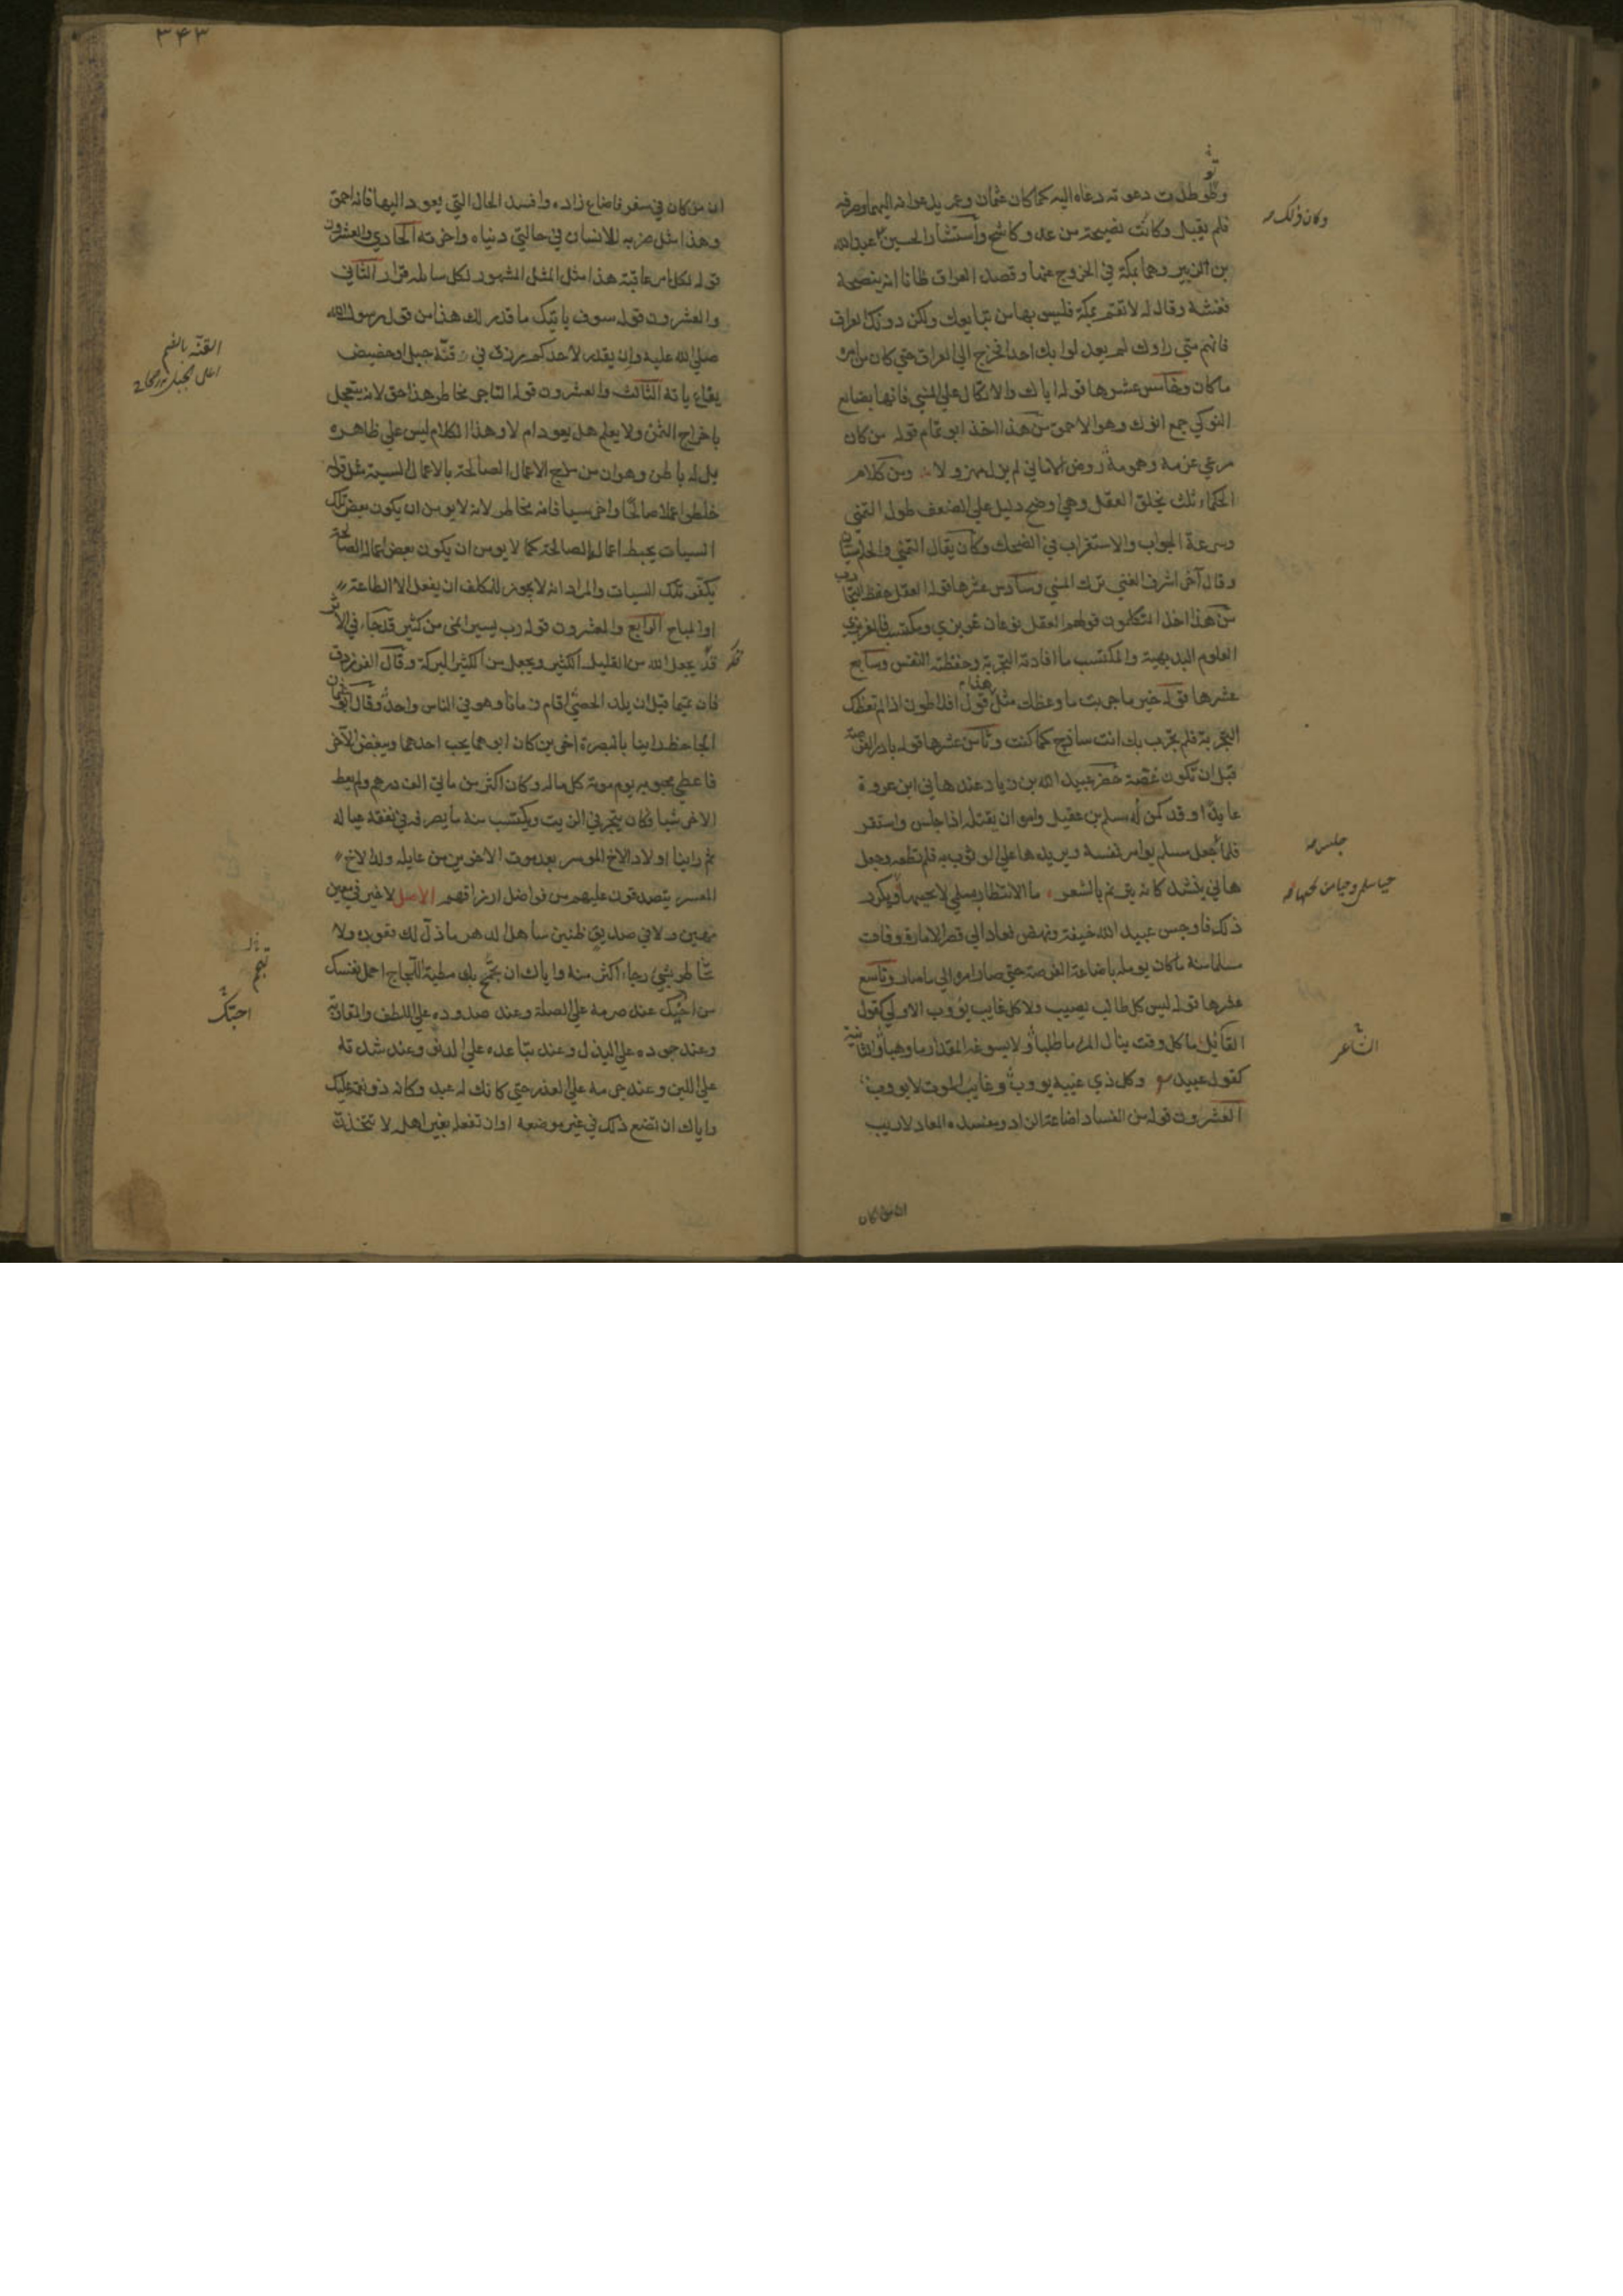 وكان ذلك
فلم يقبل وكانت نصيحة من عدو كاشح واستشار الحسين ع عبدالله
بن الزبير وهما بمكة في الخروج عنها وقصد العراق ظانا انه ينصحه
فغشه وقال له لا تقم بمكة فليس بها من يبايعك ولكن دونك العراق
فانهم متي راوك لم يعدلوا بك احدا فخرج الي العراق حتي كان من امره
ما كان وخامس عشرها قوله اياك والاتكال علي المني فانها بضائع
النوكي جمع انوك وهو الاحمق من هذا اخذ ابو تمام قوله من كان
مرعي عزمه وهمومه روض الاماني لم يزل مهزولا ومن كلام
الحكماء ثلث تخلق العقل وهي اوضح دليل علي الضعف طول التمني
وسرعة الجواب والاستغراب في الضحك وكان يقال التمني والحلم سيان
وقال آخر اشرف الغني ترك المني وسادس عشرها قوله العقل حفظ التجارب
من هذا اخذ المتكلمون قولهم العقل نوعان غريزي ومكتسب فالغريزي
العلوم البديهية والمكتسب ما افادته التجربة وحفظته النفس وسابع
عشرها قوله خير ما جربت ما وعظك مثل هذا قول افلاطون اذا لم تعظك
التجربة فلم تجرب بل انت ساذج كما كنت وثامن عشرها قوله بادر الفرصة
قبل ان تكون غصة حضر عبيد الله بن زياد عند هاني ابن عروة
عايدا وقد كمن له مسلم بن عقيل وامر ان يقتله اذا جلس واستقر
جلس
فلما جعل مسلم يوامر نفسه ويريدها علي الوثوب به فلم تطعه وجعل
هاني ينشد كانه يترنم بالشعر ما الانتظار بسلمي لا تحييها ويكرر
ذلك فاوجس عبيد الله خيفة ونهض فعاد الي قصر الامارة وفات
مسلما منه ما كان يومله باضاعة الفرصة حتي صار امره الي ما صار وتاسع
عشرها قوله ليس كل طالب يصيب ولا كل غايب يؤوب الاولي كقول
الشاعر
القائل ما كل وقت ينال المرء ما طلبا ولا يسوغه المقدار ما وهبا والثانية
كقول عبيد وكل ذي غيبة يووب وغايب الموت لا يووب
العشرون قوله من الفساد اضاعة الزاد ومفسدة المعاد لا ريب
ان من كان
٣٤٣
ان من كان في سفر فاضاع زاده وافسد الحال التي يعود اليها فانه احمق
وهذا مثل ضربه للانسان في حالتي دنياه واخرته الحادي والعشرون
قوله لكل امر عاقبة هذا مثل المثل المشهور لكل سائلة قرار الثاني
والعشرون قوله سوف ياتيك ما قدر لك هذا من قول رسول الله
صلي الله عليه وان يقدر لاحدكم رزق في قنة جبل او حضيض
القنة بالضم
اعلى الجبل
بقاع ياته الثالث والعشرون قوله التاجر مخاطر هذا حق لانه يتعجل
باخراج الثمن ولا يعلم هل يعود ام لا وهذا الكلام ليس علي ظاهره
بل له باطن وهو ان من مزج الاعمال الصالحة بالاعمال السيئة مثل قوله
خلطوا عملا صالحا واخر سيا فانه مخاطر لانه لا يومن ان يكون بعض تلك
السيات يحبط اعماله الصالحة كما لا يومن ان يكون بعض اعماله الصالحة
يكفر تلك السيات والمراد انه لا يجوز للمكلف ان يفعل الا الطاعة
او المباح الرابع والعشرون قوله رب يسير انمى من كثير قد جاء في الاثر
قد يجعل الله من القليل الكثير ويجعل من الكثير البركة وقال الفرزدق
فان تميما قبل ان يلد الحصي اقام زمانا وهو في الناس واحد وقال ابو عثمان
الجاحظ راينا بالبصرة اخوين كان ابوهما يحب احدهما ويبغض الآخر
فاعطي محبوبه يوم موته كل ماله وكان اكثر من مايتي الف درهم ولم يعط
الاخر شيا وكان يتجر في الزيت ويكتسب منه ما يصرفه في نفقة عياله
ثم راينا اولاد الاخ الموسر بعد موت الاخوين من عايله ولد الاخ
المعسر يتصدقون عليهم من فواضل ارزاقهم الاصل لا خير في معين
مهين ولا في صديق ظنين ساهل الدهر ما ذل لك قعوده ولا
تخاطر بشيء رجاء اكثر منه واياك ان تجمح بك مطية اللجاج احمل نفسك
من اخيك عند صرمه علي الصلة وعند صدوده علي اللطف والمقاربة
وعند جموده علي البذل وعند تباعده علي الدنو وعند شدته
علي اللين وعند جرمه علي العذر حتي كانك له عبد وكانه ذو نعمة عليك
واياك ان تضع ذلك في غير موضعه او ان تفعله بغير اهله لا تتخذن